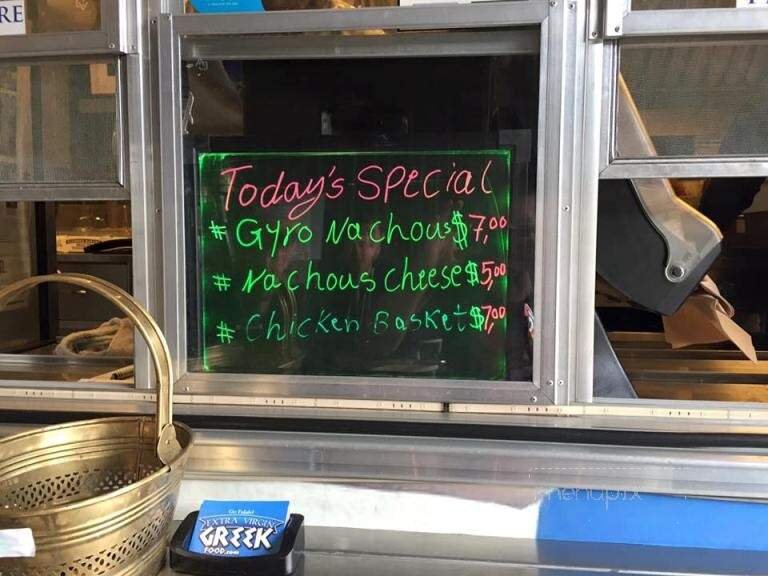 RE
Today's Special
# Gyro Nachous $7,00
# Nachous cheese $5,00
# Chicken Basket $7,00
EXTRA VIRGIN
GREEK
FOOD.com
menupix